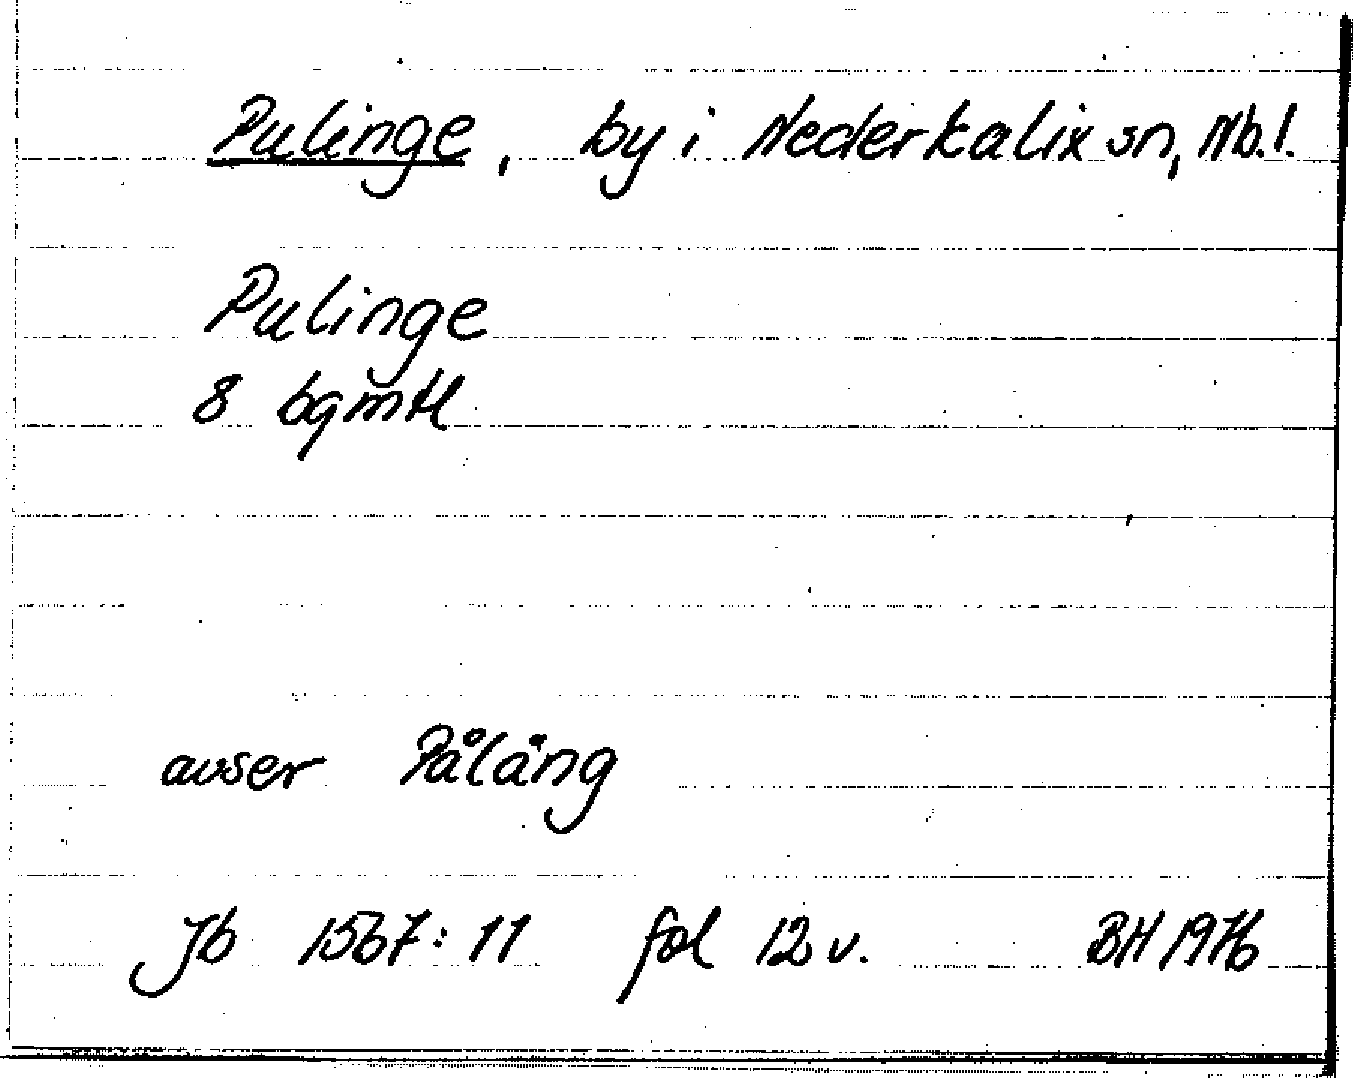 Pulinge, by i Nederkalix sn, Nb.l.
Pulinge
8 bgmtl
avser Påläng
Jb 1567:11 fol 12 v. BH 1976